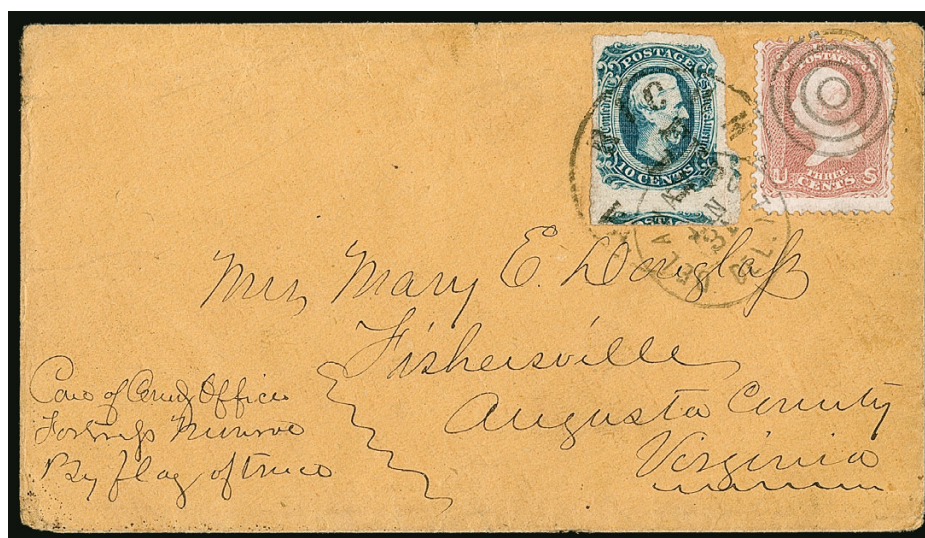 POSTAGE
Confederate States of America
10 CENTS
POSTAGE
U S
THREE
CENTS
Mrs Mary E. Douglass
Fishersville
Augusta County
Virginia
Care of Comdg Officer
Fortress Munroe
By flag of truce